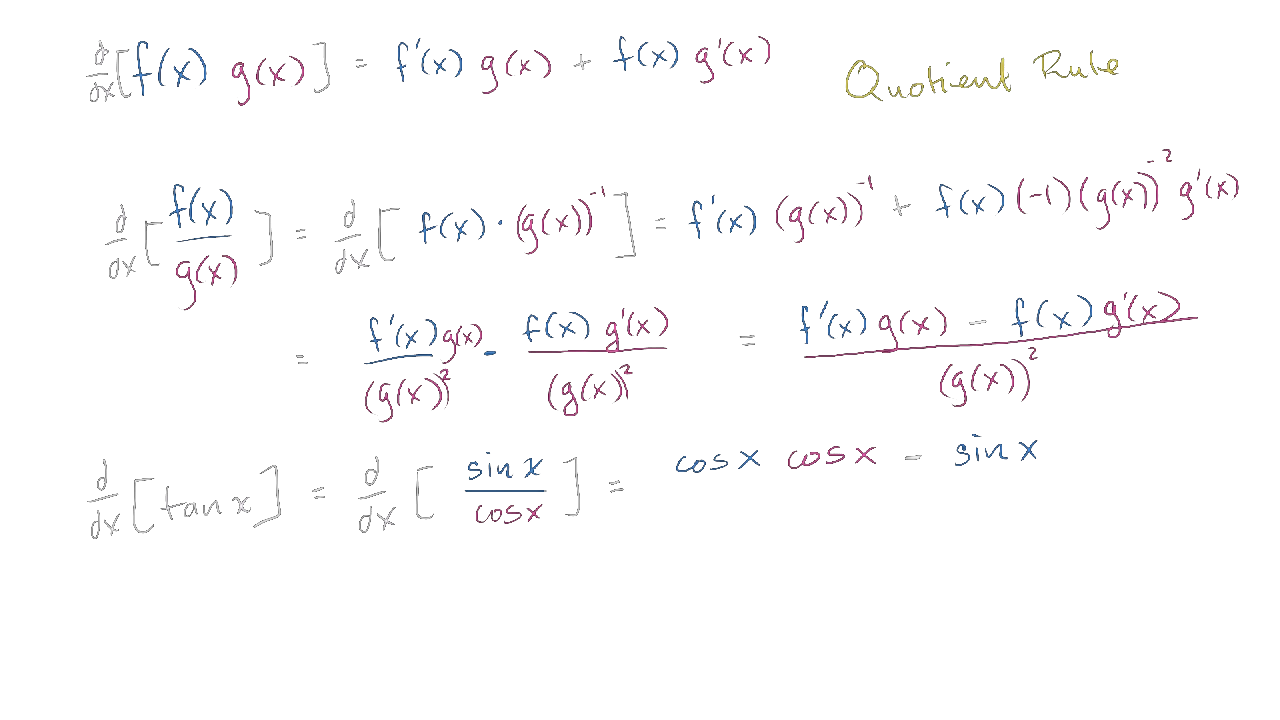 d/dx [f(x) g(x)] = f'(x) g(x) + f(x) g'(x)
Quotient Rule
d/dx [f(x)/g(x)] = d/dx [f(x) · (g(x))⁻¹] = f'(x) (g(x))⁻¹ + f(x) (-1) (g(x))⁻² g'(x)
= f'(x) g(x)/(g(x))² - f(x) g'(x)/(g(x))² = f'(x) g(x) - f(x) g'(x)/(g(x))²
d/dx [tan x] = d/dx [sin x/cos x] = cos x cos x - sin x